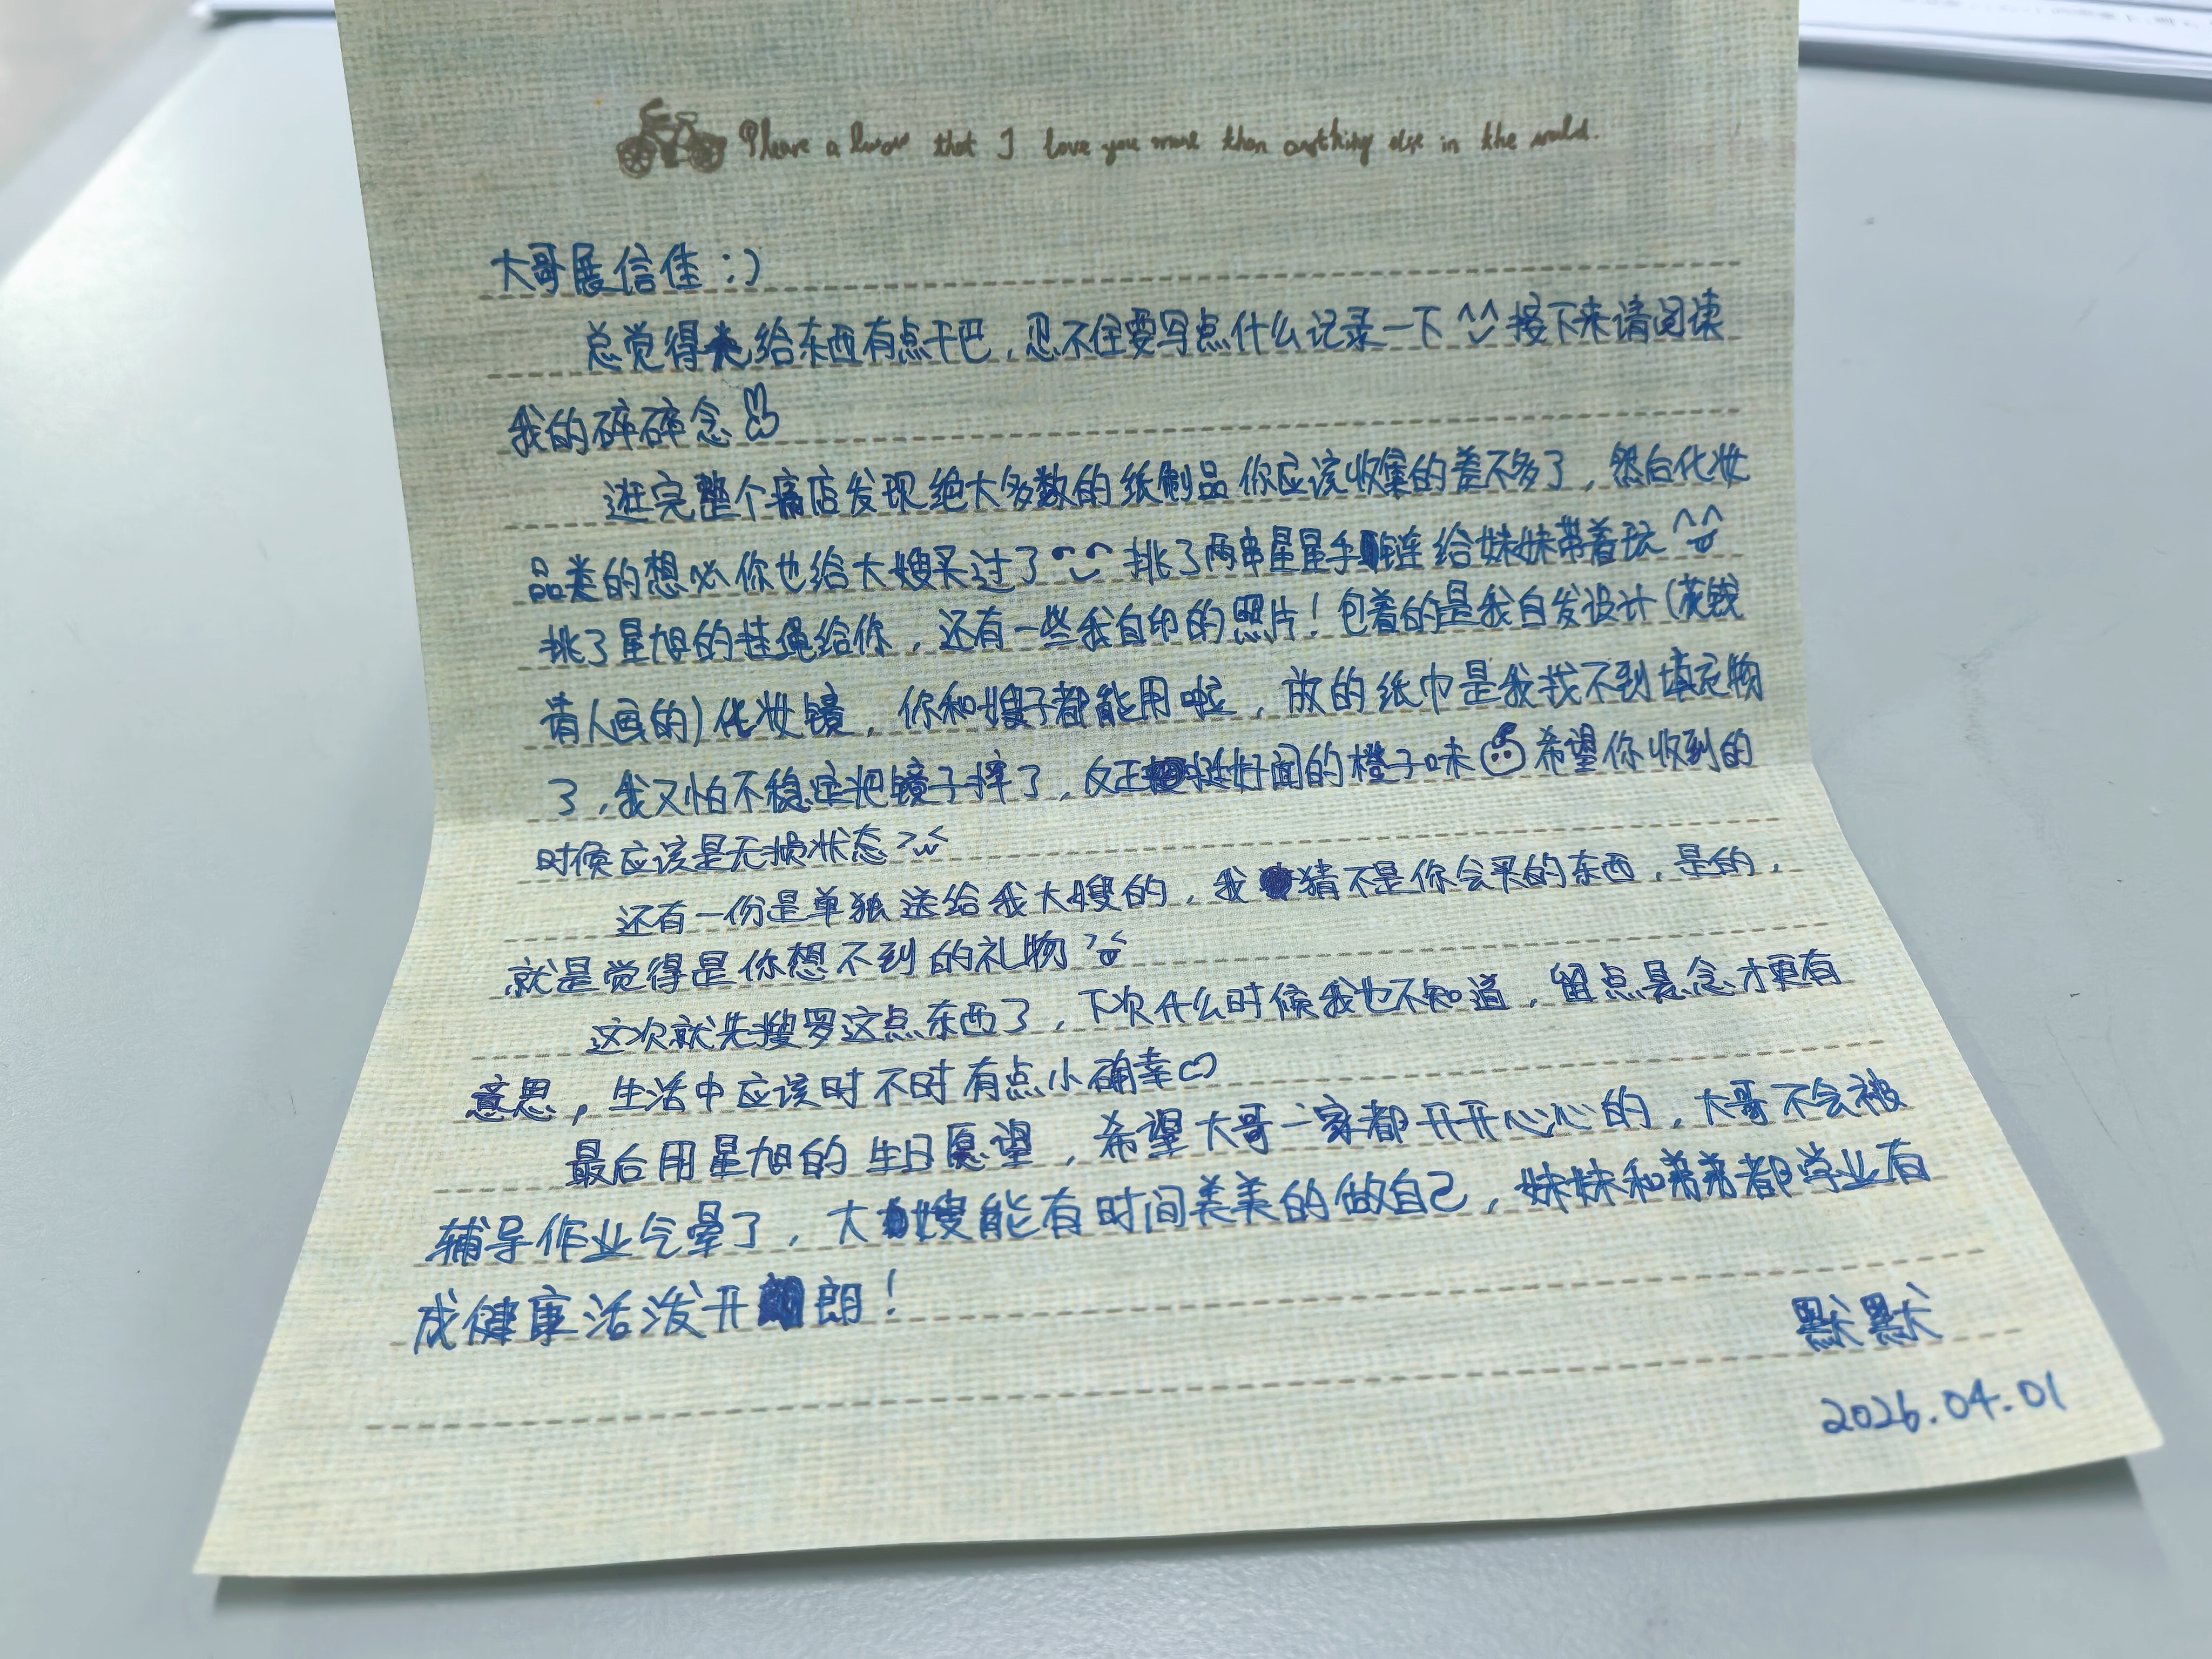 Please a know that I love you more than anything else in the world.
大哥展信佳:)
总觉得光给东西有点干巴，忍不住要写点什么记录一下^^接下来请阅读
我的碎碎念
逛完整个痛店发现绝大多数的纸制品你应该收集的差不多了，然后化妆
品类的想必你也给大嫂买过了 挑了两串星星手链给妹妹带着玩^^
挑了星旭的挂绳给你，还有一些我自印的照片！包着的是我自发设计(花钱
请人画的)化妆镜，你和嫂子都能用啦，放的纸巾是我找不到填充物
了，我又怕不稳定把镜子摔了，反正挺好闻的橙子味 希望你收到的
时候应该是无损状态>w<
还有一份是单独送给我大嫂的，我猜不是你会买的东西，是的，
就是觉得是你想不到的礼物
这次就先搜罗这点东西了，下次什么时候我也不知道，留点悬念才更有
意思，生活中应该时不时有点小确幸♡
最后用星旭的生日愿望，希望大哥一家都开开心心的，大哥不会被
辅导作业气晕了，大嫂能有时间美美的做自己，妹妹和弟弟都学业有
成健康活泼开朗！
默默
2026.04.01